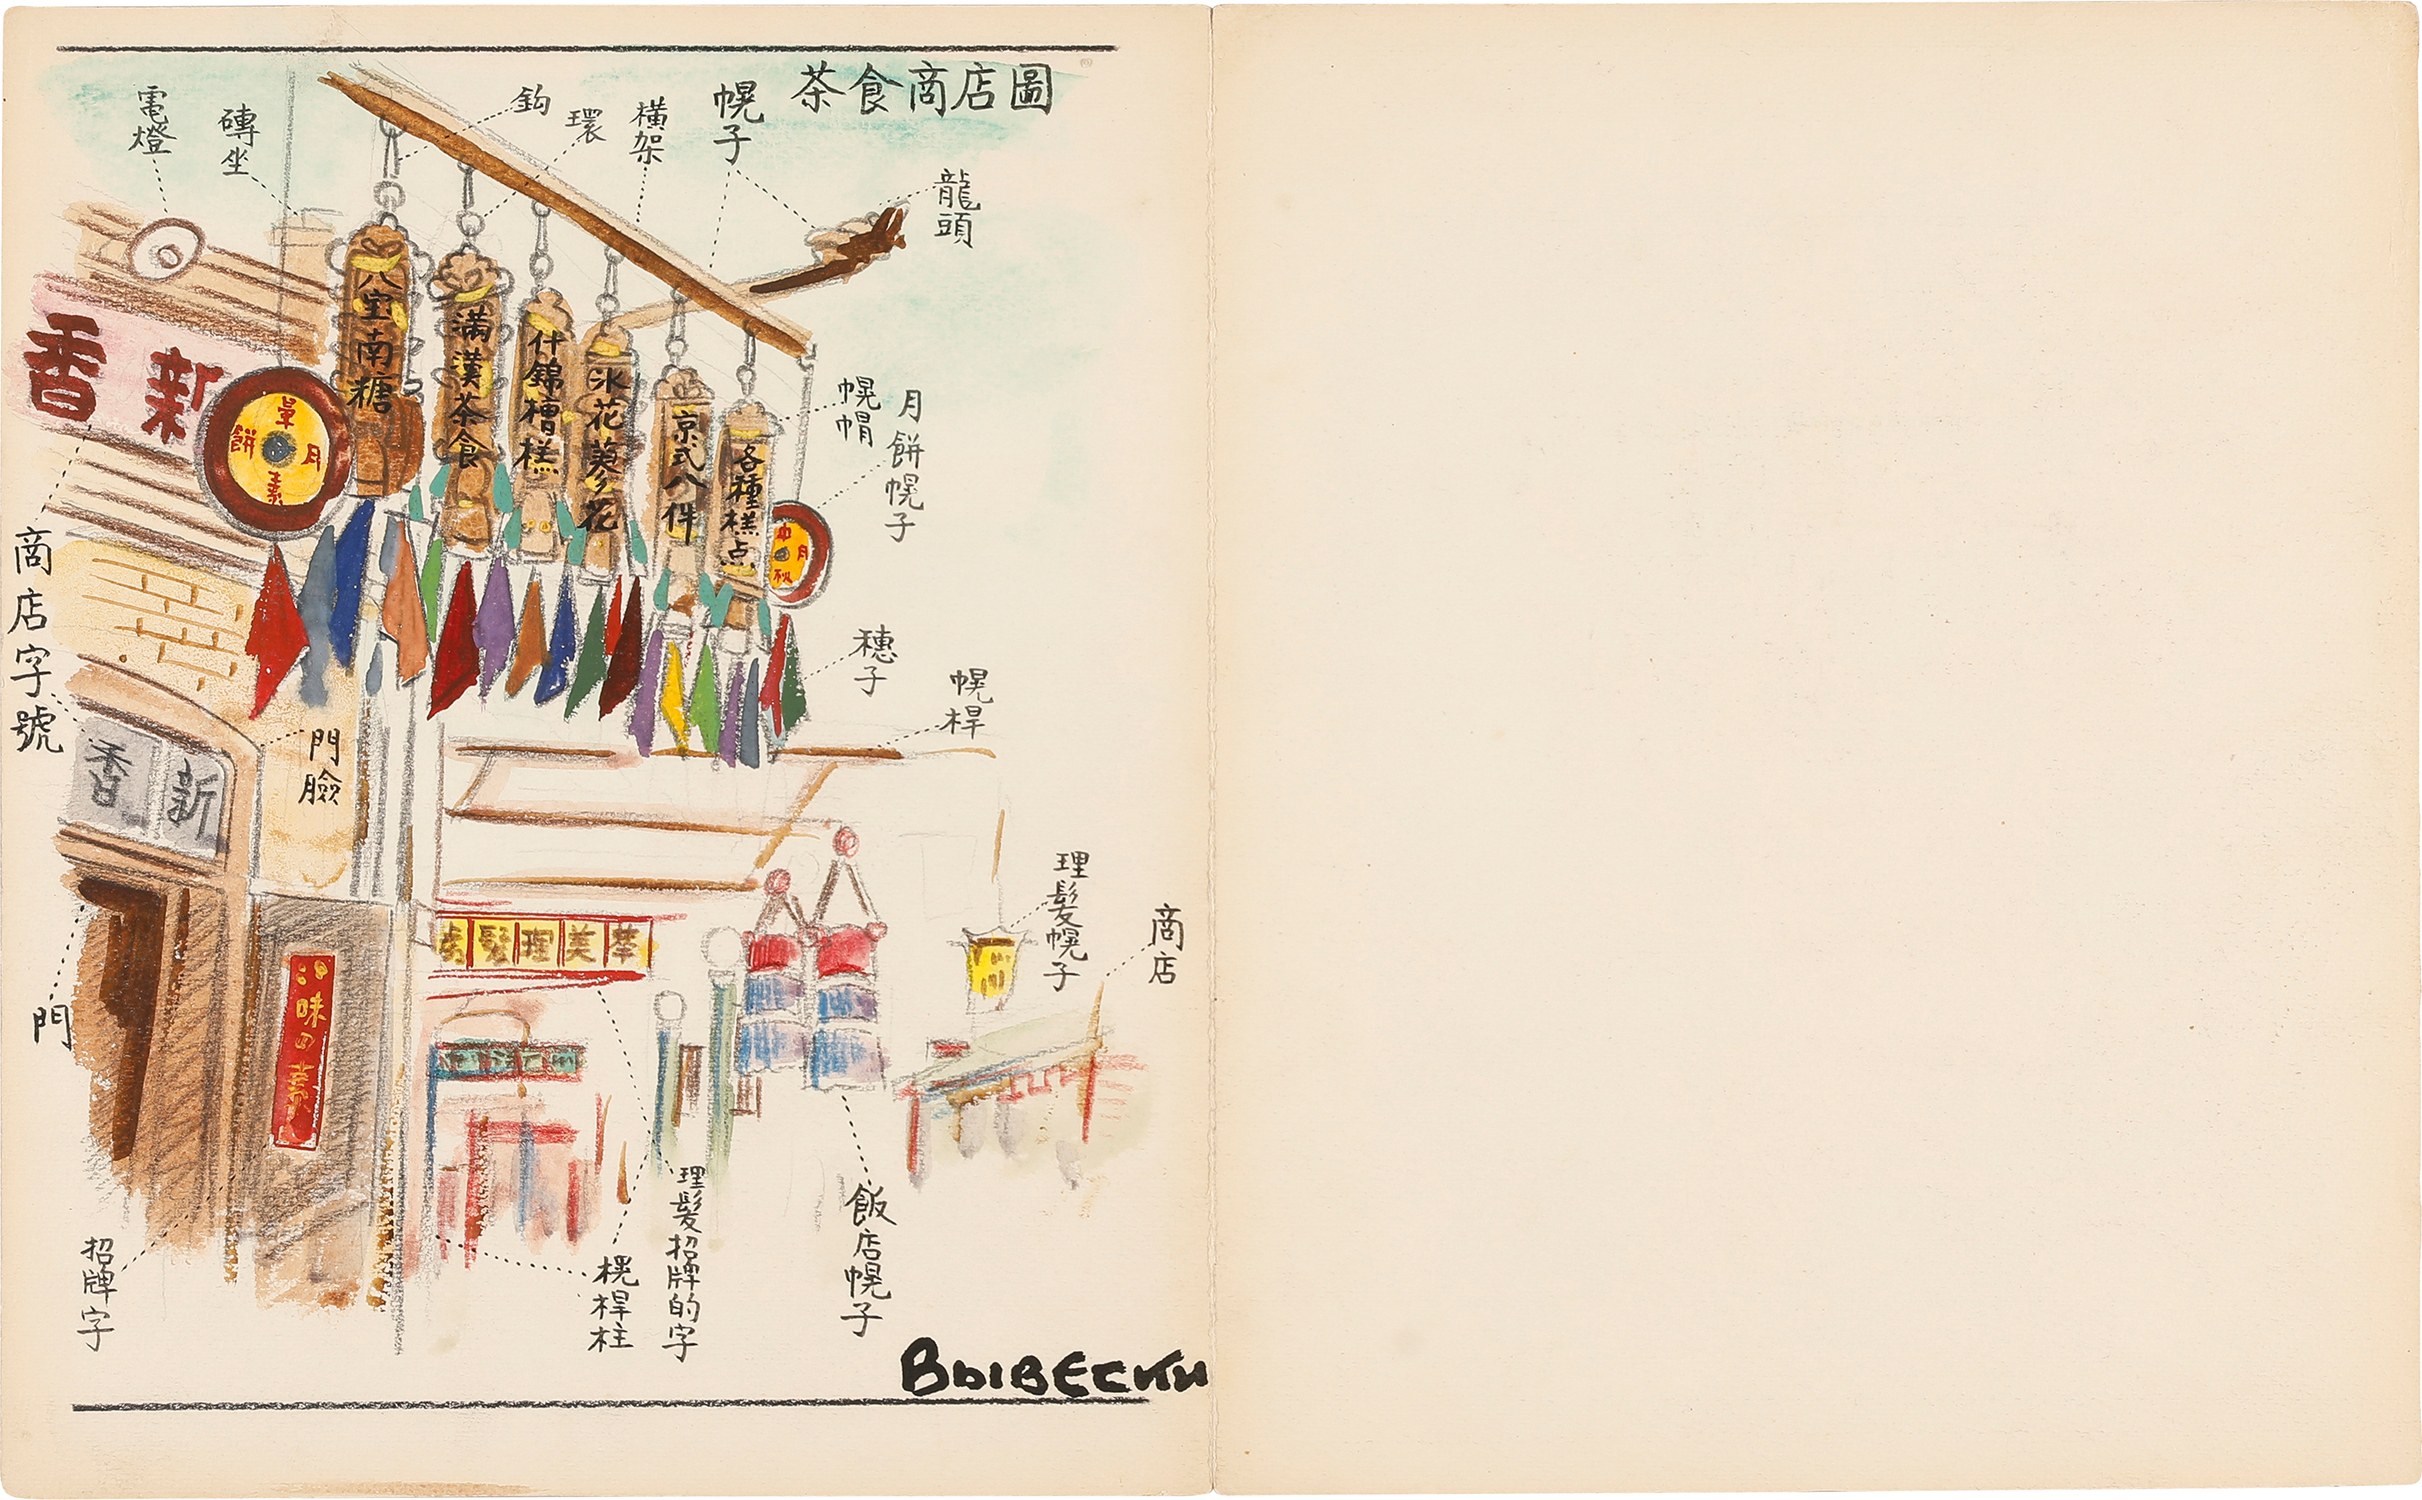 茶食商店圖
電燈
磚坐
鈎
環
橫架
幌子
龍頭
八宝南糖
滿漢茶食
什錦槽糕
冰花蓼花
京式八件
各種糕点
新香
月素餅
中月秋
幌帽
月餅幌子
商店字號
穗子
幌桿
新香
門臉
門
味四
理髮幌子
商店
美理髮
招牌字
幌桿柱
理髮招牌的字
飯店幌子
Вывески